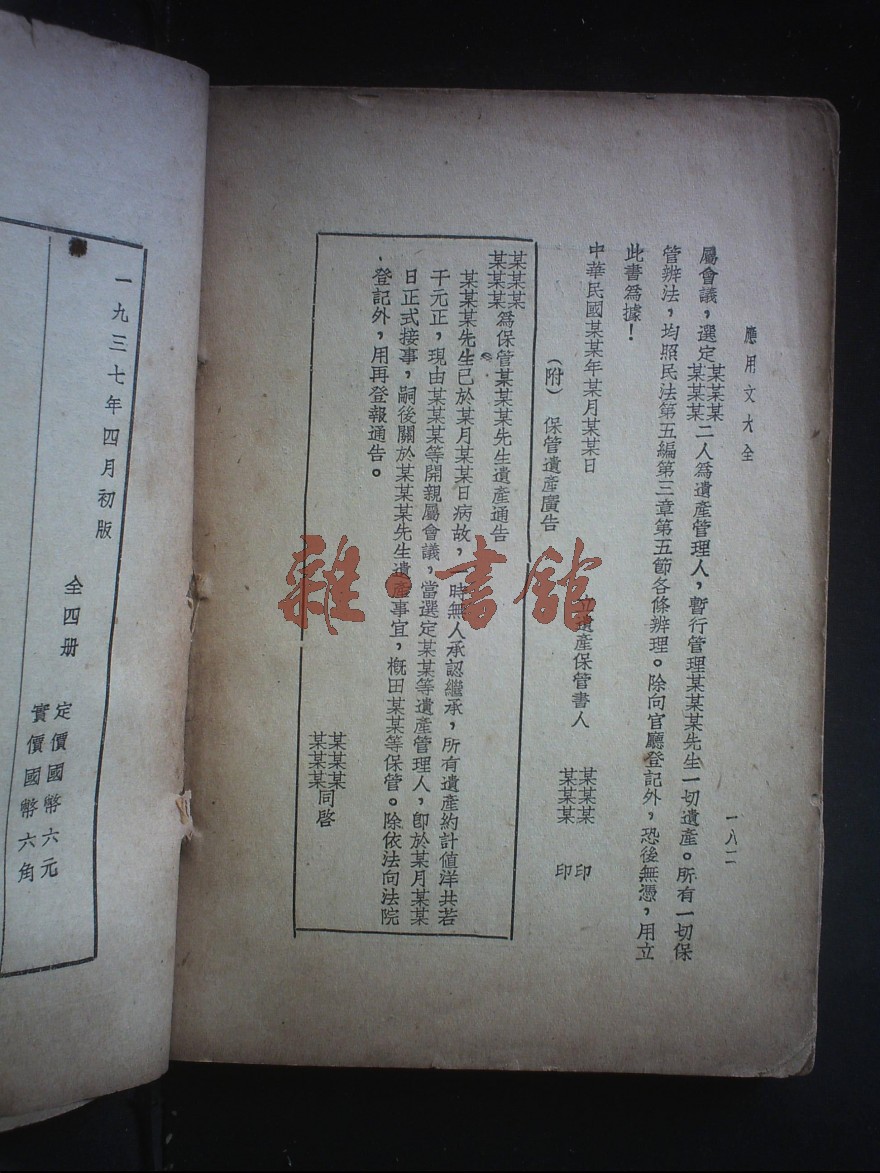 應用文大全
一八二
屬會議，選定某某某某某某二人爲遺產管理人，暫行管理某某某先生一切遺產。所有一切保
管辦法，均照民法第五編第三章第五節各條辦理。除向官廳登記外，恐後無憑，用立
此書爲據！
中華民國某某年某月某某日
立遺產保管書人
某某某 印
某某某 印
（附） 保管遺產廣告
某某某某某某爲保管某某某先生遺產通告
某某某先生已於某月某某日病故，一時無人承認繼承，所有遺產約計值洋共若
干元正，現由某某某等開親屬會議，當選定某某等遺產管理人，卽於某月某某
日正式接事，嗣後關於某某某先生遺產事宜，概田某某等保管。除依法向法院
登記外，用再登報通告。
某某某某某某同啓
一九三七年四月初版
全四册
定價國幣六元
實價國幣六角
雜·書館